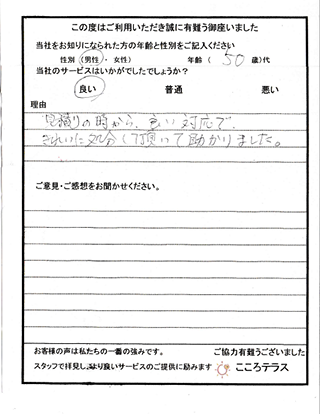 この度はご利用いただき誠に有難う御座いました
当社をお知りになられた方の年齢と性別をご記入ください
性別 (男性 ・ 女性) 年齢 ( 50 歳)代
当社のサービスはいかがでしたでしょうか？
良い 普通 悪い
理由
見積りの時から、良い対応で、
きれいに処分して頂いて助かりました。
ご意見・ご感想をお聞かせください。
お客様の声は私たちの一番の強みです。 ご協力有難うございました
スタッフで拝見し、より良いサービスのご提供に励みます こころテラス